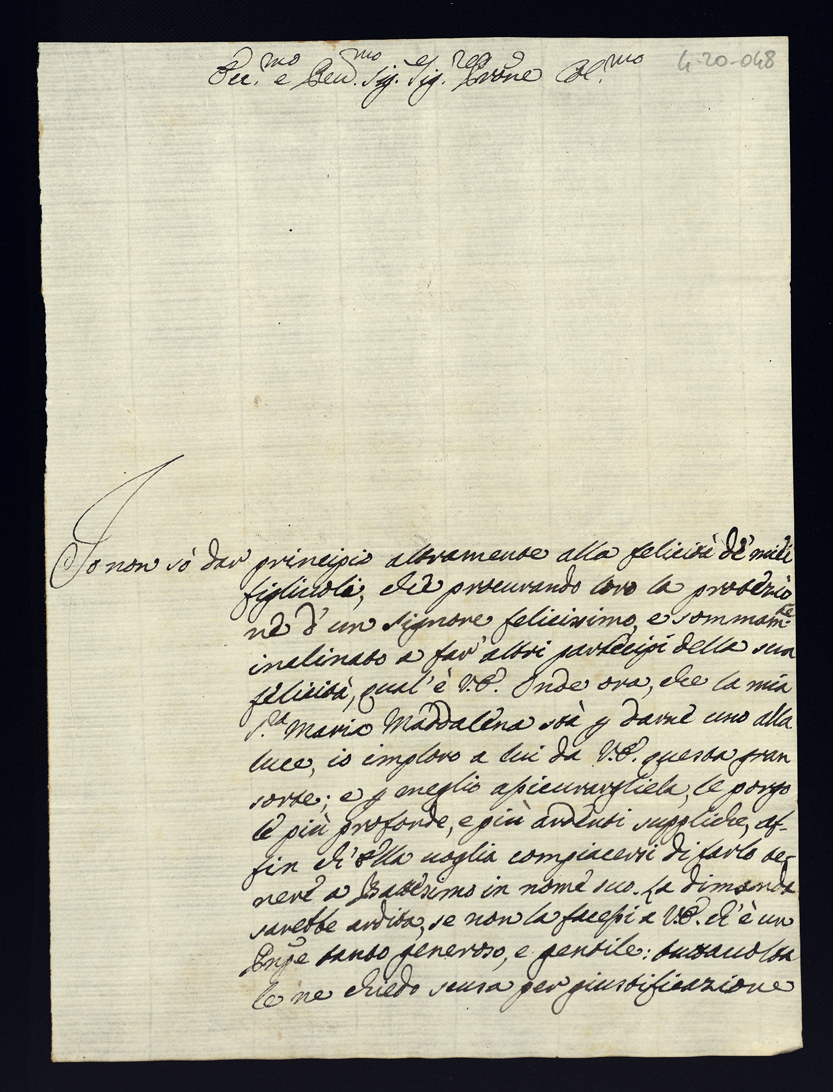 Ecc.mo e Reu.mo Sig.e Sig.re Prone Col.mo 4-20-048
Io non sò dar principio altramente alla felicità de' miei
figliuoli, che procurando loro la protezio
ne d'un signore felicissimo, e sommam.te
inclinato a far' altri partecipi della sua
felicità, qual'è V.E. Onde ora, che la mia
S.ra Maria Maddalena stà p darne uno alla
luce, io imploro a lui da V.E. questa gran
sorte; e p meglio assicurargliela, le porgo
le più profonde, e più ardenti suppliche, af-
fin ch'Ella voglia compiacersi di farlo te-
nere a Battesimo in nome suo. La dimanda
sarebbe ardita, se non la facessi a V.E. ch'è un
Pnpe tanto generoso, e gentile: tuttauolta
le ne chiedo scusa per giustificazione